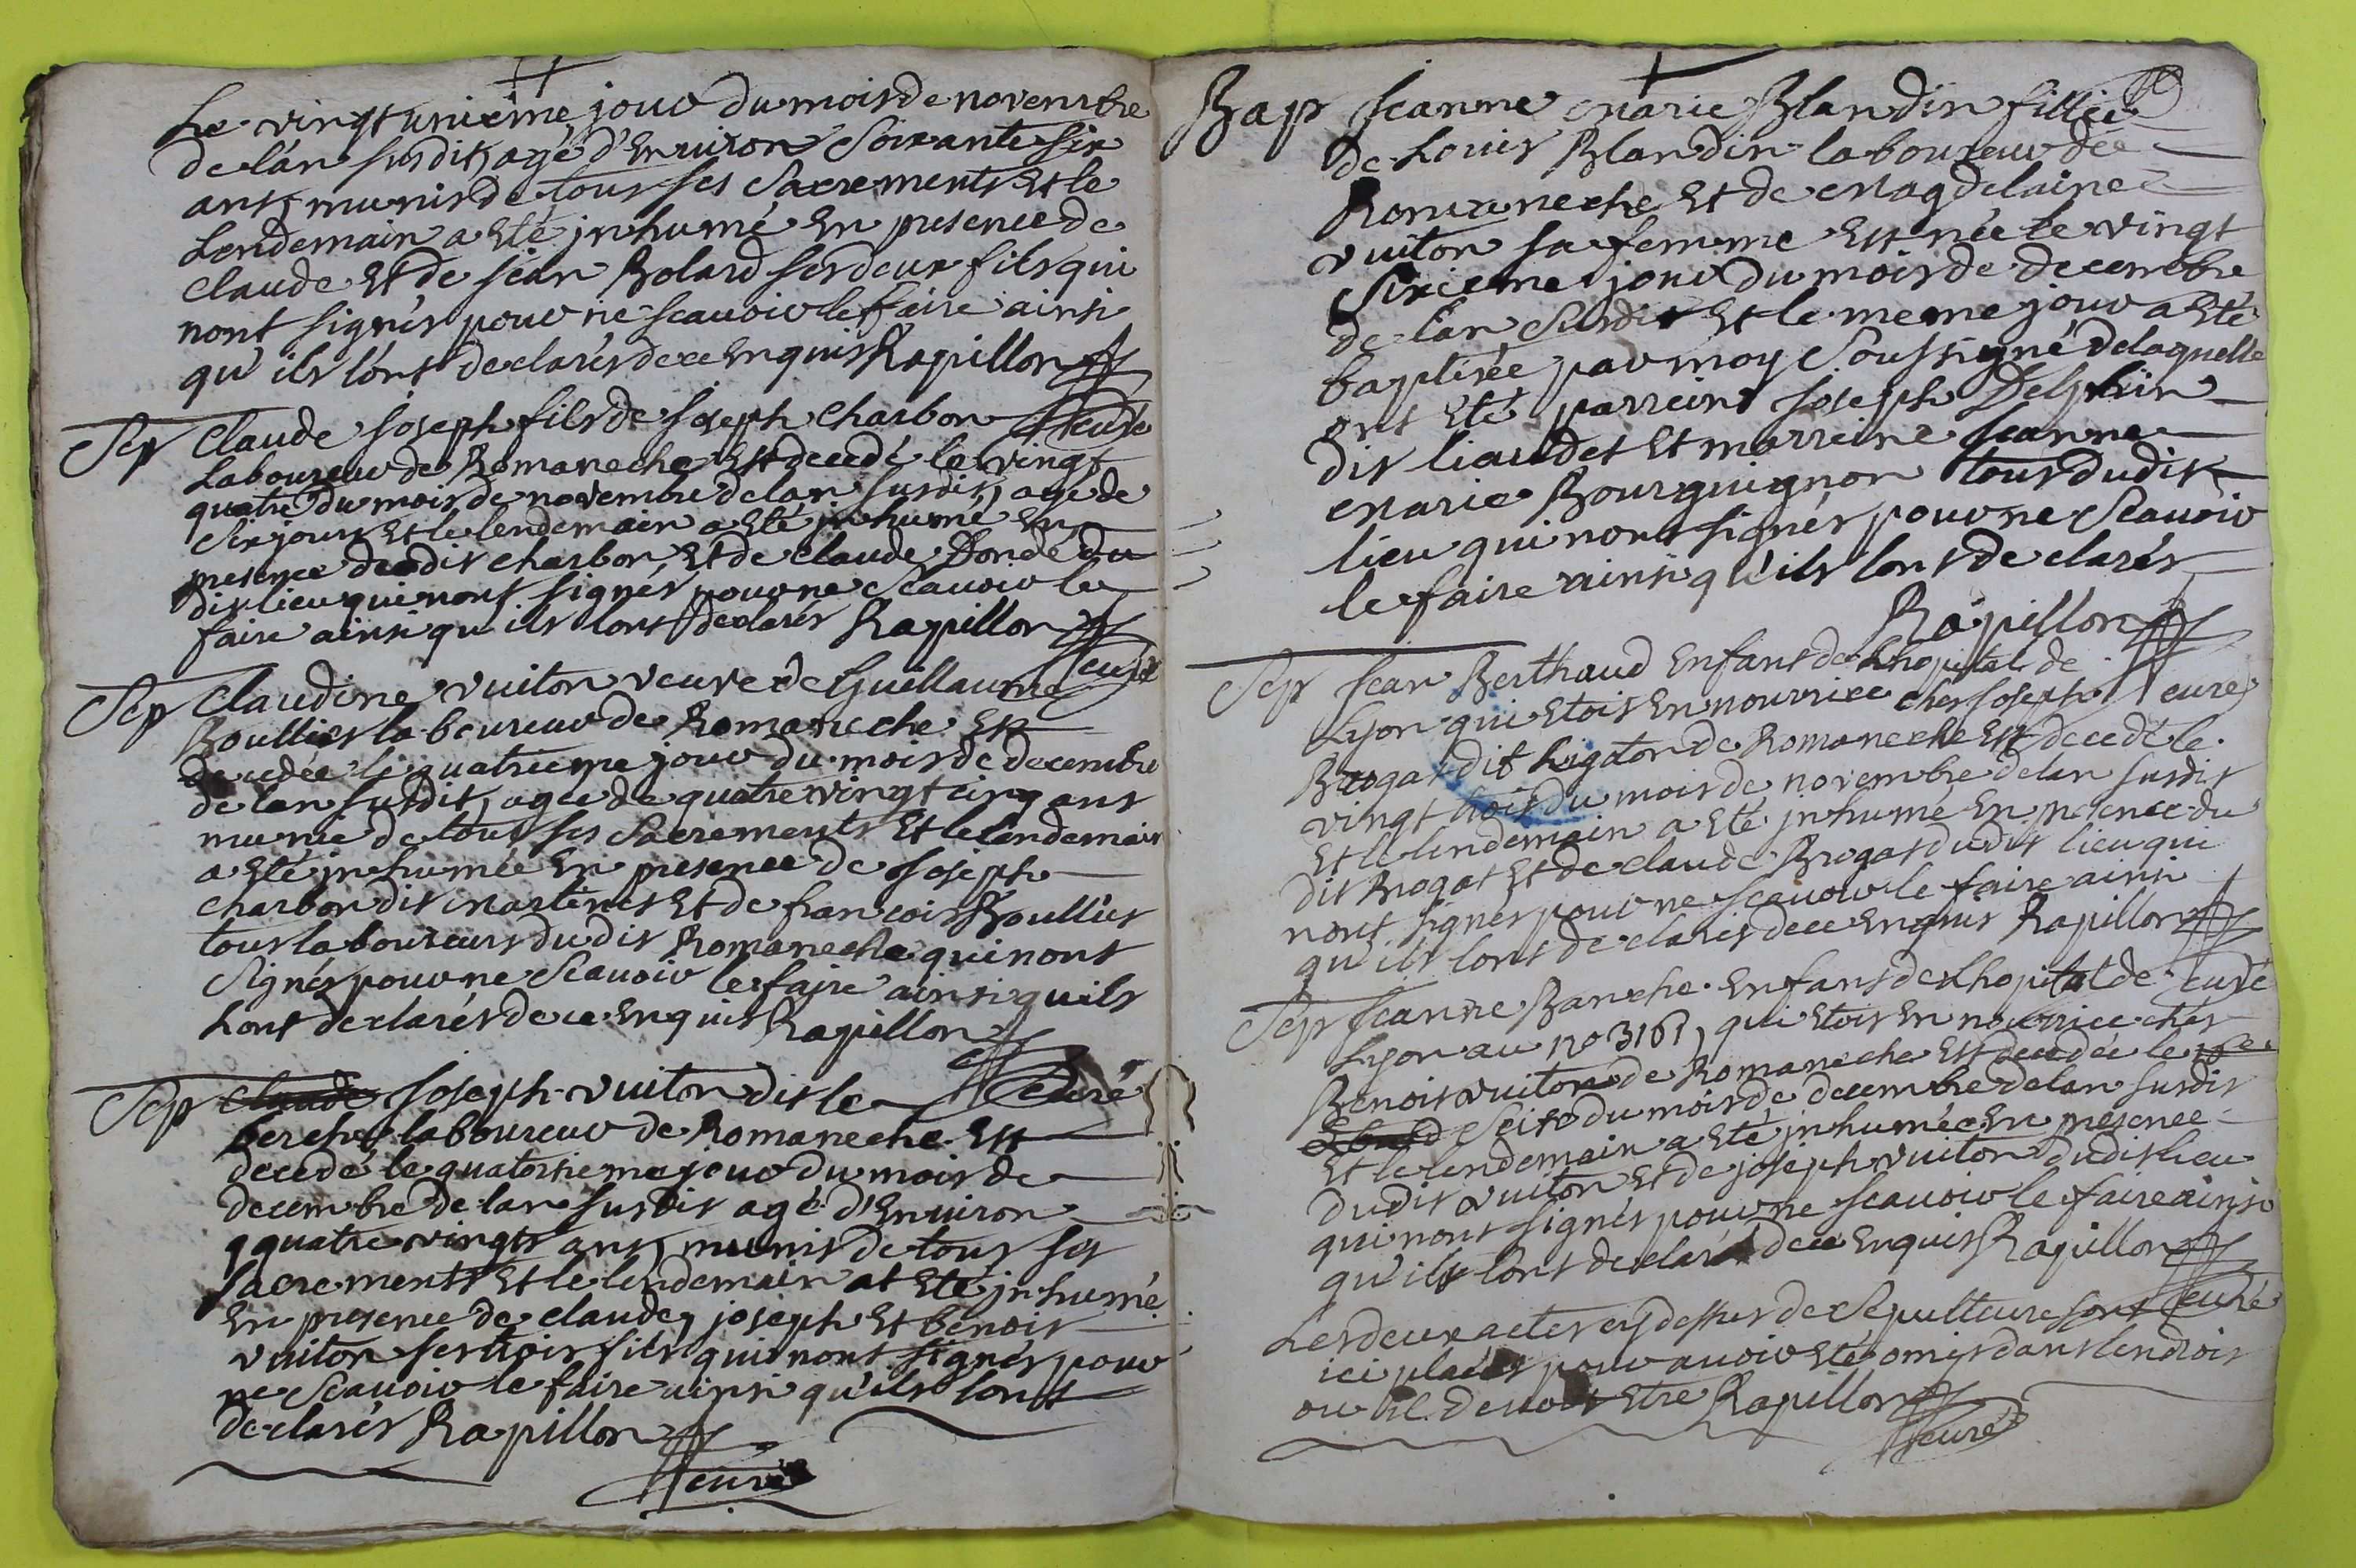 Le vingt unieme jour du mois de novembre
de l'an susdit, agé d'Environ Soixante six
ans, munis de tous ses Sacrements Et le
Lendemain a Eté inhumé En presence de
Claude Et de jean Bolard ses deux fils qui
nont signés pour ne scauoir le faire ainsi
qu'ils lont declarés de ce Enquis Rapillon
curé
Sep Claude joseph fils de joseph Charbon
Laboureur de Romaneche Est decedé le vingt
quatre du mois de novembre de lan susdit, agé de
Six jours Et le lendemain a Eté inhumé En
presence dudit charbon, Et de claude Dondé du
dit lieu qui nont signés pour ne Scauoir le
faire ainsi qu'ils lont declarés Rapillon
curé
Sep Claudine Vuiton veuve de Guillaume
Boullier laboureur de Romaneche Est
decedée le quatrieme jour du mois de decembre
de lan susdit, agée de quatre vingt cinq ans
munie de tous ses Sacrements Et le lendemain
a Eté inhumée En presence de joseph
charbon dit martinet Et de francois Boullier
tous laboureurs dudit Romaneche qui nont
Signés pour ne Scauoir le faire ainsi quils
Lont declarés de ce Enquis Rapillon
curé
Sep Claude joseph Vuiton dit le
perche laboureur de Romaneche Est
decedé le quatorsieme jour du mois de
decembre de lan susdit agé d'Enuiron
quatre vingts ans, munis de tous ses
sacrements Et le lendemain at Eté inhumé
En presence de claude, joseph Et benoit
vuiton ses trois fils qui nont signés pour
ne Scauoir le faire ainsi qu'ils lont
declarés Rapillon
curé
Bap jeanne marie Blandin fille
de Louis Blandin laboureur de
Romaneche Et de magdelaine
vuiton sa femme Est née le vingt
Sixieme jour du mois de decembre
de lan Susdit Et le meme jour a Eté
baptisée par moy Soussigné de laquelle
ont Eté parrein joseph Delphin
dit liaudet Et marreine jeanne
marie Bourguignon tous dudit
lieu qui nont signés pour ne Scauoir
le faire ainsi qu'ils lont declarés
Rapillon
curé
Sep jean Berthaud Enfant de Lhopital de
Lyon qui Etoit En nourrice chés joseph
Brogat dit Ligaton de Romaneche Est decedé le
vingt trois du mois de novembre de lan susdit
Et le lendemain a Eté inhumé En presence du
dit Brogat Et de claude Brogat dudit lieu qui
nont signés pour ne scauoir le faire ainsi
qu'ils lont declarés de ce Enquis Rapillon
curé
Sep jeanne Banche Enfant de Lhopital de
Lyon au no 3161, qui Etoit En nourrice chés
Benoit vuiton de Romaneche Est decedée le
Seise du mois de decembre de lan susdit
Et le lendemain a Eté inhumée En presence
dudit vuiton Et de joseph vuiton dudit lieu
qui nont signés pour ne scauoir le faire ainsi
qu'ils lont declaré de ce Enquis Rapillon
curé
Les deux actes cy dessus de Sepulteure sont
ici placés pour auoir Eté omis dans lendroit
ou il deuoit Etre Rapillon
curé